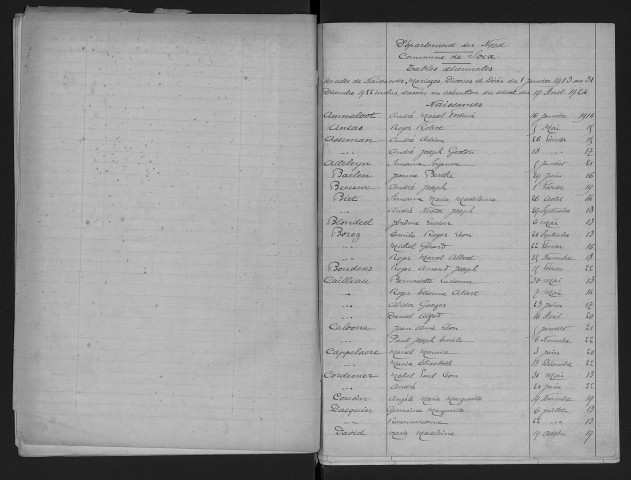 Département du Nord
Commune de Socx
Tables décennales
des actes de Naissances, Mariages, Divorces et Décès du 1 Janvier 1913 au 31
Décembre 1922 inclus dressées en exécution du décret du 19 Avril 1924
Naissances
Ammeloot André Marcel 16 Janvier 1914
Andas Roger Robert 5 Mai 15
Asseman André Adrien 26 Février 15
"" André Joseph Gaston 18 "" 13
Atteleyn Simonne Suzanne 5 Janvier 21
Baelen Jeanne Berthe 29 Juin 16
Beeuwe André Joseph 1 Février 19
Biet Simonne Marie Madeleine 26 Août 14
"" André Nestor Joseph 29 Septembre 13
Blondeel Jérôme Lucien 6 Mai 13
Borez Emile Roger Léon 21 Septembre 13
"" Michel Gérard 22 Février 16
"" Roger Marcel Albert 25 Novembre 13
Boudens Roger Amand Joseph 5 Février 22
Cailleau Bernadette Lucienne 30 Mai 13
"" Roger Etienne Albert 7 Mai 14
"" Georges 23 Juin 17
"" Daniel 14 Avril 20
Caloone Jean Aimé Léon 5 Janvier 21
"" Paul Joseph Emile 6 Novembre 22
Cappelaere Marcel Maurice 3 Juin 20
"" Marie Elisabeth 13 Décembre 22
Cordemer Michel Paul Léon 31 Mai 13
"" André 24 Juin 22
Cousin Angèle Marie Marguerite 19 Novembre 19
Dacquin Germaine Marguerite 6 Juillet 13
"" 22 "" 13
David Marie Madeleine 19 Octobre 19